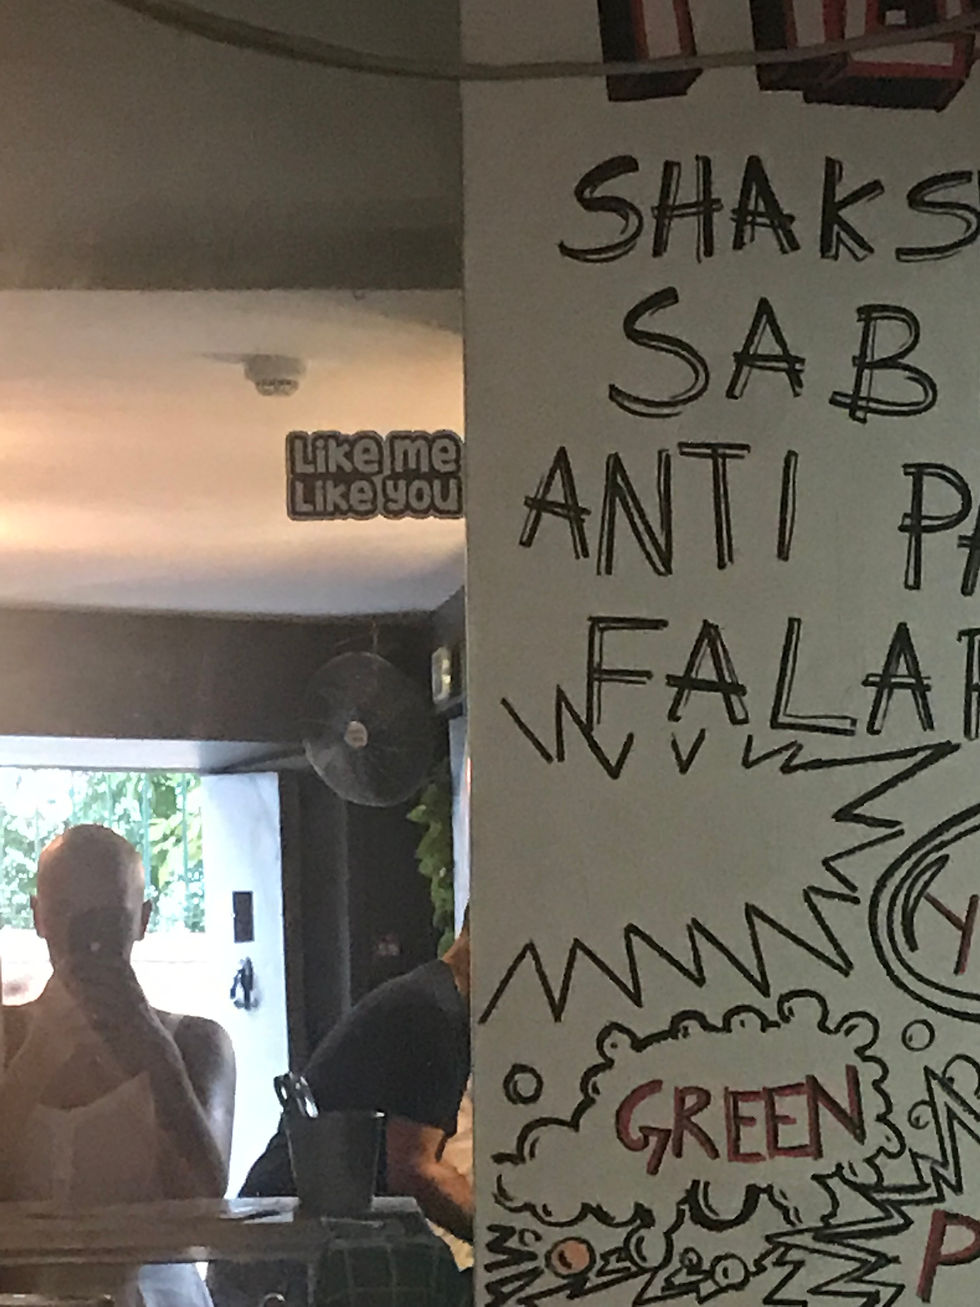 Like me
Like you
SHAKS
SAB
ANTI PA
FALAF
Y
GREEN
P